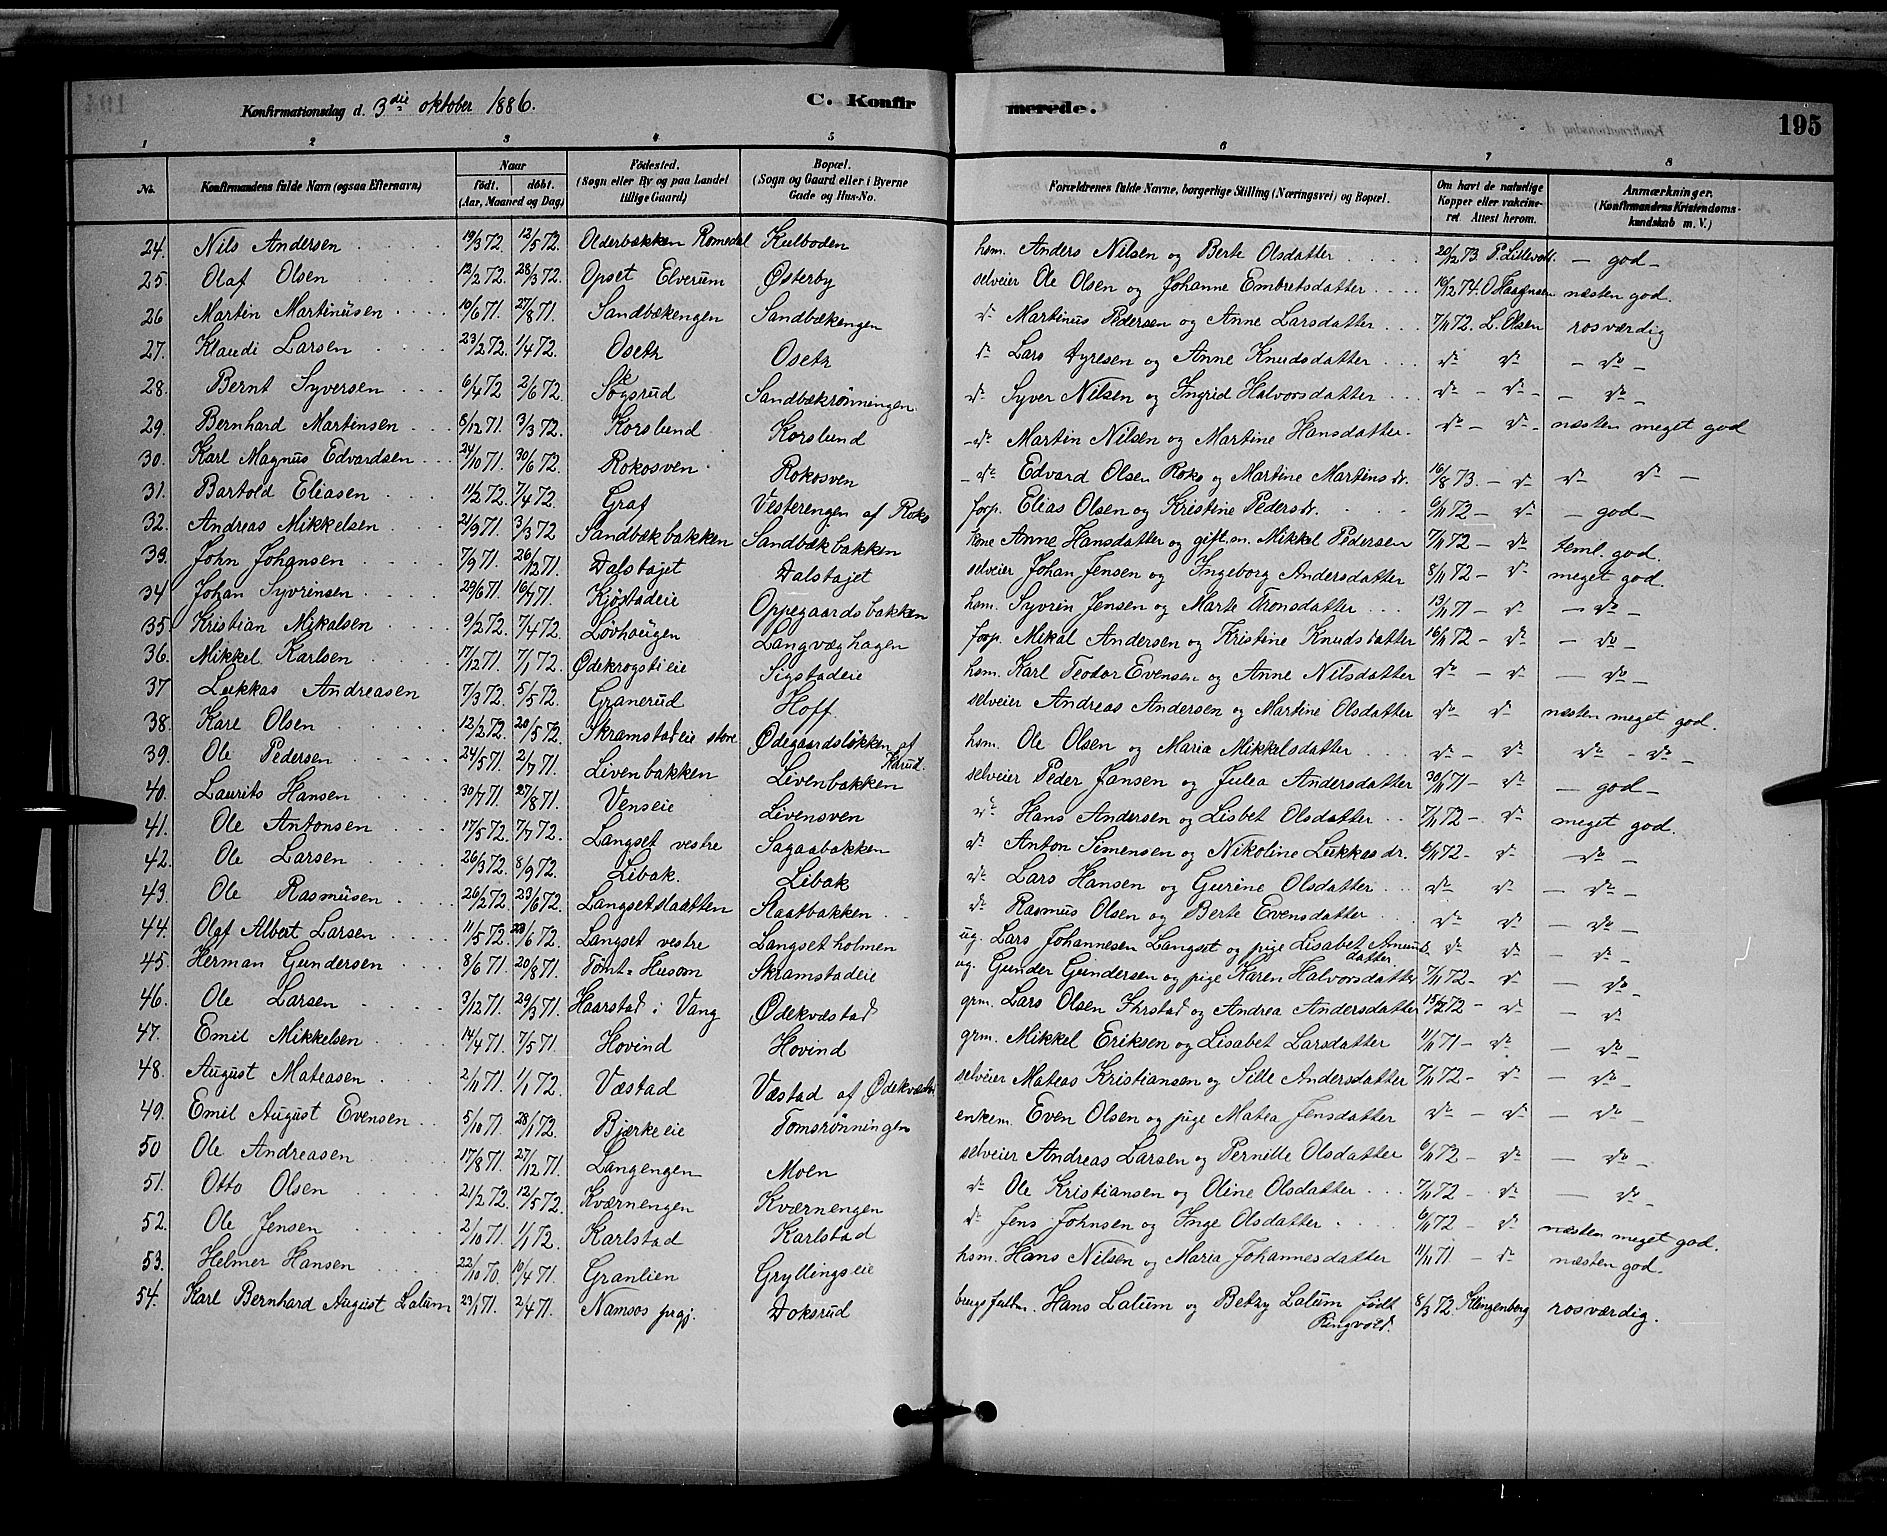 Konfirmationsdag d. 3die oktober 1886. C. Konfir merede. 195
1 2 3 4 5 6 7 8
No. Konfirmandens fulde Navn (ogsaa Efternavn) Naar født. døbt. (Aar, Maaned og Dag) Fødested. (Sogn eller By og paa Landet tillige Gaard) Bopæl. (Sogn og Gaard eller i Byerne Gade og Hus-No. Forældrenes fulde Navne, borgerlige Stilling (Næringsvei) og Bopæl. Om havt de naturlige Kopper eller vakcineret. Attest herom. Anmærkninger. (Konfirmandens Kristendomskundskab m. V.)
24. Nils Andersen 19/3 72. 12/5 72. Olderbækken Romedal Kulboden hsm. Anders Nilsen og Berte Olsdatter 20/12 73. P. Lillevold. – god –
25. Olaf Olsen 12/2 72. 28/3 72. Opset Elverum Østerby selveier Ole Olsen og Johanne Embretsdatter 16/12 74. O. Haagnsen næsten god.
26 Martin Martinusen 10/6 71. 27/8 71. Sandbækengen Sandbækengen do Martinus Pedersen og Anne Larsdatter 7/11 72. L. Olsen rosværdig
27. Klaudi Larsen 23/2 72. 1/4 72. Oseth Oseth do Lars Dyresen og Anne Knudsdatter do do – do –
28. Bernt Syversen 6/4 72 2/6 72. Søgsrud Sandbækrønningen do Syver Nilsen og Ingrid Halvorsdatter do – do – – do –
29. Bernhard Martinsen 8/12 71. 3/3 72. Korslund Korslund – do Martin Nilsen og Martine Hansdatter. do – do – næsten meget god
30. Karl Magnus Edvardsen 24/10 71. 30/6 72. Rokosven Rokosven – do Edvard Olsen Roko og Martine Martinsdr. 16/8 73. – do do do –
31. Bartold Eliasen 11/2 72. 7/4 72. Graf Vesterengen af Roko forp. Elias Olsen og Kristine Pedersdr. 6/11 72 – do – god –
32. Andreas Mikkelsen 21/9 71. 3/3 72 Sandbækbakken Sandbækbakken Anne Hansdatter og gift m. Mikkel Pedersen 7/11 72 – do teml. god.
33. John Johansen 7/9 71. 26/12 71. Dalstøjet Dalstøjet selveier Johan Jensen og Ingeborg Andersdatter 8/11 72 – do meget god.
34 Johan Syvrinsen 29/6 71. 16/7 71. Kjøstadeie Oppegaardsbakken hsm. Syvrin Jensen og Marte Tronsdatter 13/11 71 – do – do –
35. Kristian Mikalsen 9/2 72. 7/4 72. Løvhaugen Langvæghagen forp. Mikal Andersen og Kristine Knudsdatter 16/11 72 – do – do –
36. Mikkel Karlsen 17/12 71. 7/1 72. Ødekrogstieie Sigstadeie hsm. Karl Teodor Evensen og Anne Nilsdatter do – do – do –
37 Lukkas Andreasen 7/3 72. 5/5 72. Granerud Hoff. selveier Andreas Andersen og Martine Olsdatter do – do næsten meget god.
38. Karl Olsen 12/2 72. 20/5 72. Skramstadeie store Ødegaardsløkken af Hørud. hsm. Ole Olsen og Maria Mikkelsdatter do – do do – do –
39. Ole Pedersen 24/5 71. 2/7 71. Livenbakken Livenbakken selveier Peder Jansen og Julea Andersdatter 30/11 71 – do – god –
40. Laurits Hansen 30/7 71. 27/8 71. Venseie Livensven do Hans Andersen og Lisbet Olsdatter 7/11 72 – do meget god.
41. Ole Antonsen 17/5 72. 7/7 72. Langset vestre Sagaabakken do Anton Simensen og Nikoline Lukkasdr. 6/11 72 – do – do –
42. Ole Larsen 26/3 72. 8/9 72. Libak. Libak do Lars Hansen og Gurine Olsdatter do do – do –
43. Ole Rasmusen 26/2 72. 23/6 72. Langsetslaatten Slaatbakken do Rasmus Olsen og Berte Evensdatter do do – do –
44. Olaf Albert Larsen 11/5 72. 23/6 72. Langset vestre Langsetholmen ug. Lars Johannesen Langset og pige Lisabet Amundsdatter do do – do –
45. Herman Gundersen 8/6 71. 20/8 71. Tomt = Husom Skramstadeie ug. Gunder Gundersen og pige Karen Halvorsdatter 7/11 72 – do – do –
46. Ole Larsen 3/12 71. 29/3 71. Haarstad i Vang Ødekvæstad grm. Lars Olsen og Andrea Andersdatter 15/7 72 – do – do
47. Emil Mikkelsen 14/4 71. 7/5 71. Hovind Hovind grm. Mikkel Eriksen og Lisabet Larsdatter 11/11 71 – do – do –
48. August Mateasen 2/11 71. 1/1 72. Væstad Væstad af Ødekvæstad selveier Mateas Kristiansen og Sille Andersdatter 7/11 72 – do – do –
49. Emil August Evensen 5/10 71. 28/1 72. Bjærkeeie Tomsrønningen enkem. Even Olsen og pige Matea Jensdatter do – do – do –
50 Ole Andreasen 17/8 71. 27/12 71. Langengen Moen selveier Andreas Larsen og Pernille Olsdatter 6/11 72 – do – do –
51. Otto Olsen 21/2 72. 12/5 72. Kværnengen Kværnengen do Ole Kristiansen og Oline Olsdatter 7/11 72 – do – do –
52. Ole Jensen 2/10 71. 1/1 72. Karlstad Karlstad do Jens Johnsen og Inge Olsdatter 6/11 72 – do næsten meget god.
53. Helmer Hansen 22/10 70. 10/4 71. Granlien Gryllingseie hsm. Hans Nilsen og Maria Johannesdatter 11/11 71 – do næsten god.
54. Karl Bernhard August Latum 23/1 71. 2/4 71. Namsos prgj. Doksrud Hans Latum og Betzy Latum født Ringvold. 8/3 72. Klingenberg rosværdig.